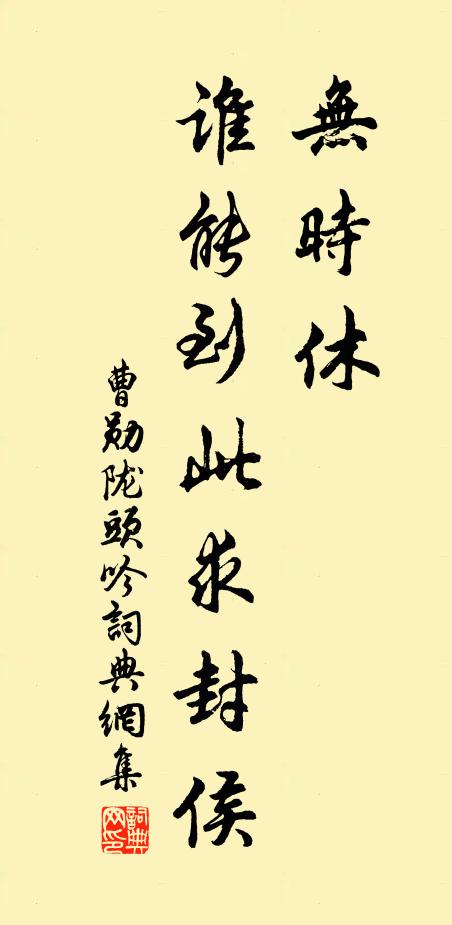 無時休
誰能到此求封侯
曹勛陇頭吟詞典網集
詞典网印